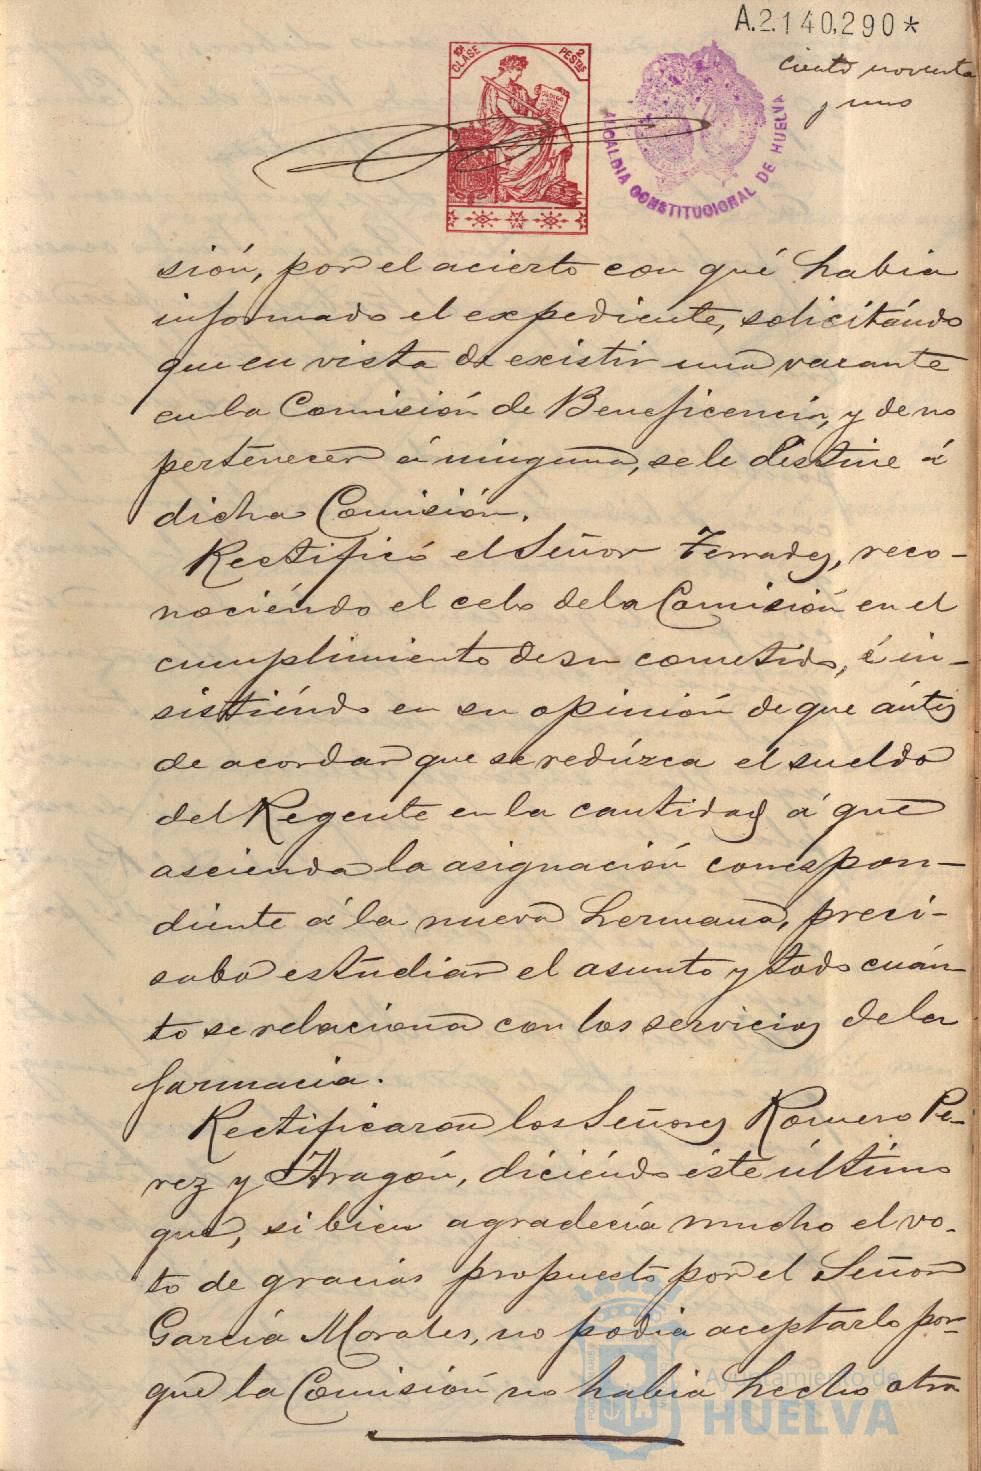 A.2.140.290*
ciento noventa
y uno
10ª CLASE
2 PESETAS
ALCALDIA CONSTITUCIONAL DE HUELVA
sión, por el acierto con qué habia
informado el expediente, solicitándo
que en vista de existir una vacante
en la Comisión de Beneficencia, y de no
pertenecer á ninguna, se le destine á
dicha Comisión.
Rectificó el Señor Terrades, reco-
nociéndo el celo de la Comisión en el
cumplimiento de su cometido, é in-
sistiéndo en su opinión de que ántes
de acordar que se redúzca el sueldo
del Regente en la cantidad á que
ascienda la asignación correspon-
diente á la nueva hermana, preci-
saba estudiar el asunto y todo cuán-
to se relaciona con los servicios de la
farmacia.
Rectificaron los Señores Romero Pe-
rez y Aragón, diciéndo éste último
que, si bien agradecía mucho el vo-
to de gracias propuesto por el Señor
García Morales, no podia aceptarlo por-
que la Comisión no habia hecho otra
Ayuntamiento de
HUELVA